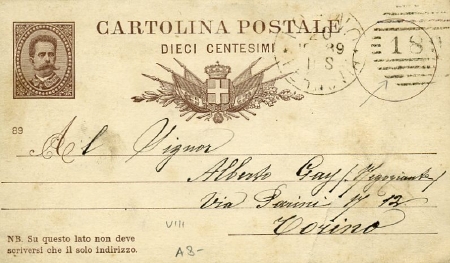 CARTOLINA POSTALE
DIECI CENTESIMI
18
89
Al Signor
Alberto Gay (Negoziante)
Via Parini N 12
Torino
VIII
A8-
NB. Su questo lato non deve
scriversi che il solo indirizzo.